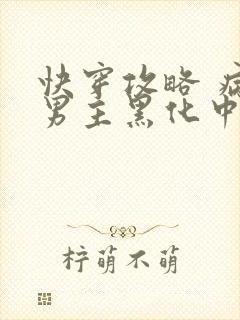 快穿攻略 病
男主黑化中
柠萌不萌